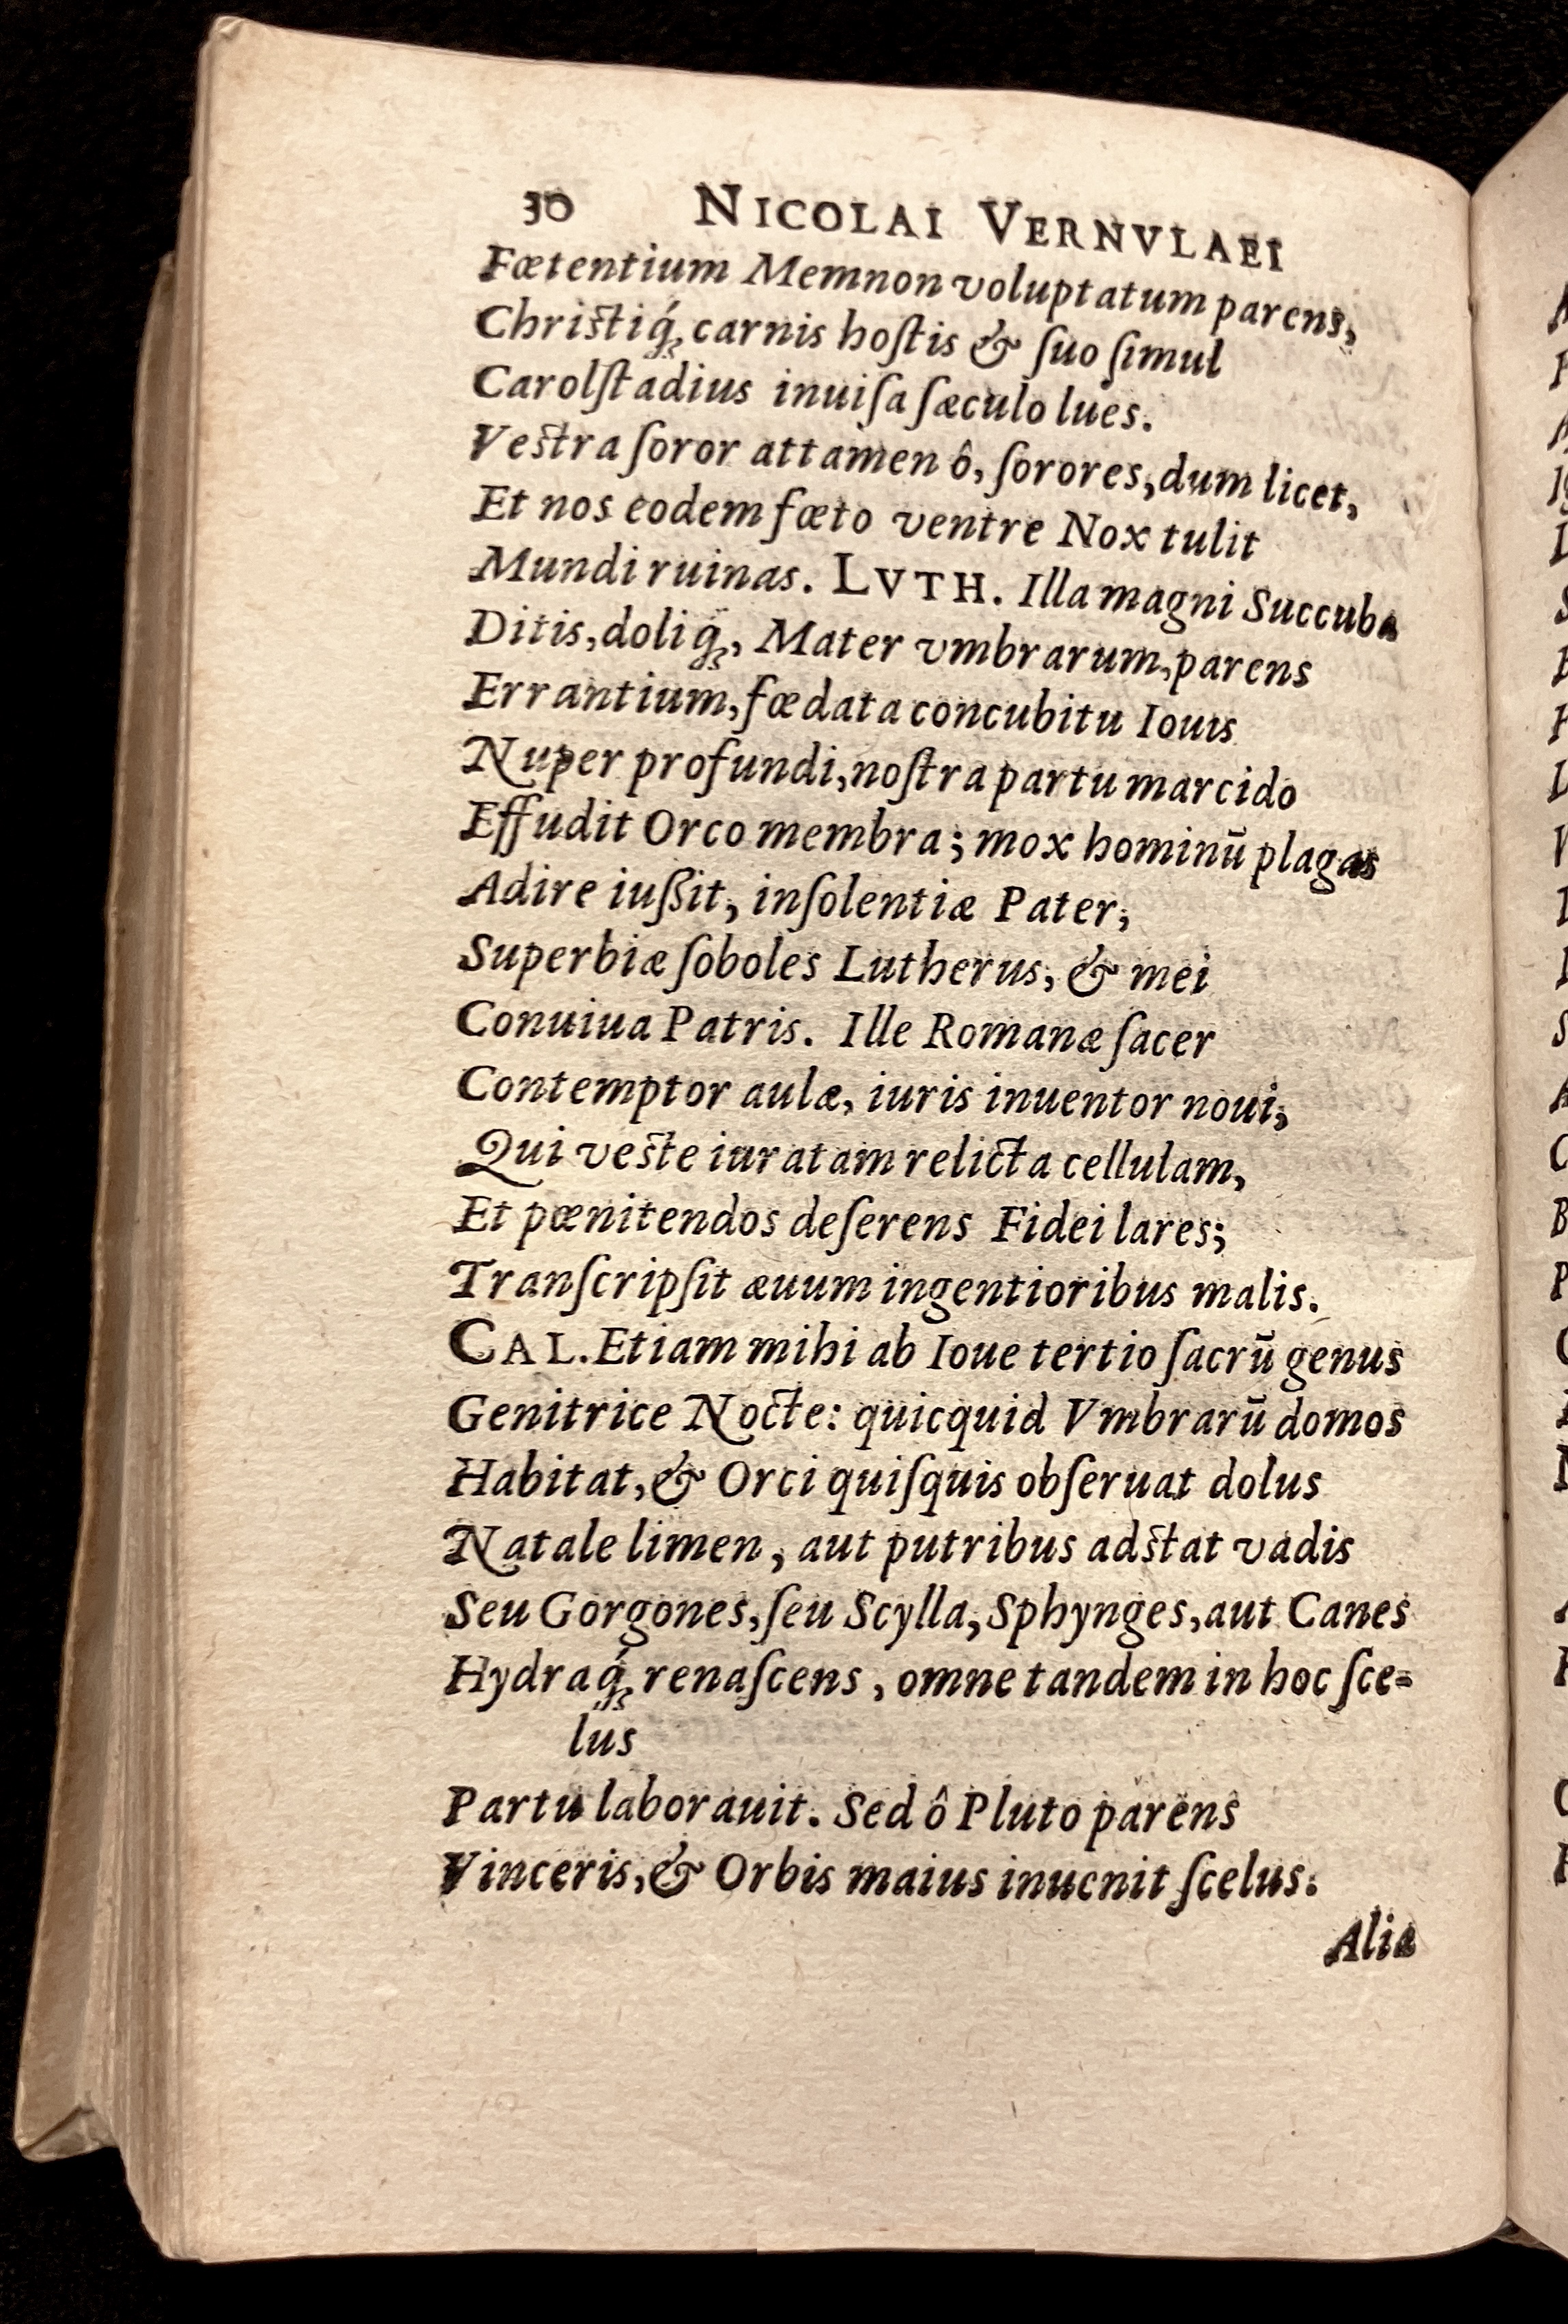 30 NICOLAI VERNVLAEI
Fœtentium Memnon voluptatum parens,
Chriſtiq́ꝫ carnis hoſtis & ſuo ſimul
Carolſtadius inuiſa ſæculo lues.
Veſtra ſoror attamen ô, ſorores, dum licet,
Et nos eodem fœto ventre Nox tulit
Mundi ruinas. LVTH. Illa magni Succuba
Ditis, doliq́ꝫ, Mater vmbrarum, parens
Errantium, fœdata concubitu Iouis
Nuper profundi, noſtra partu marcido
Effudit Orco membra; mox hominū plagas
Adire iuſſit, inſolentiæ Pater,
Superbiæ ſoboles Lutherus, & mei
Conuiua Patris. Ille Romanæ ſacer
Contemptor aulæ, iuris inuentor noui,
Qui veſte iuratam relicta cellulam,
Et pœnitendos deſerens Fidei lares;
Tranſcripſit æuum ingentioribus malis.
CAL. Etiam mihi ab Ioue tertio ſacrū genus
Genitrice Nocte: quicquid Vmbrarū domos
Habitat, & Orci quiſquis obſeruat dolus
Natale limen, aut putribus adſtat vadis
Seu Gorgones, ſeu Scylla, Sphynges, aut Canes
Hydraq́ꝫ renaſcens, omne tandem in hoc ſce-
lus
Partu laborauit. Sed ô Pluto parens
Vinceris, & Orbis maius inuenit ſcelus.
Alia